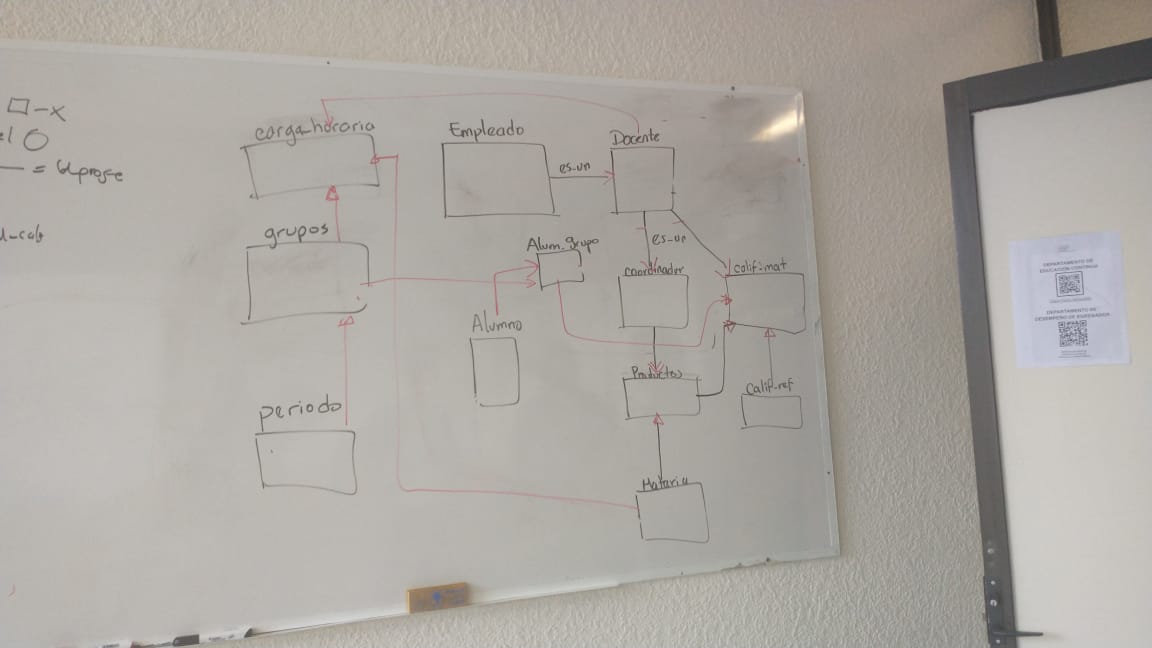 □-x
el ○
carga_horaria
Empleado
Docente
es-un
grupos
Alum_grupo
es-un
coordinador
calif-mat
Alumno
Productos
calif-ref
periodo
Materia
DEPARTAMENTO DE
EDUCACIÓN CONTINUA
DEPARTAMENTO DE
DESEMPEÑO DE EGRESADOS